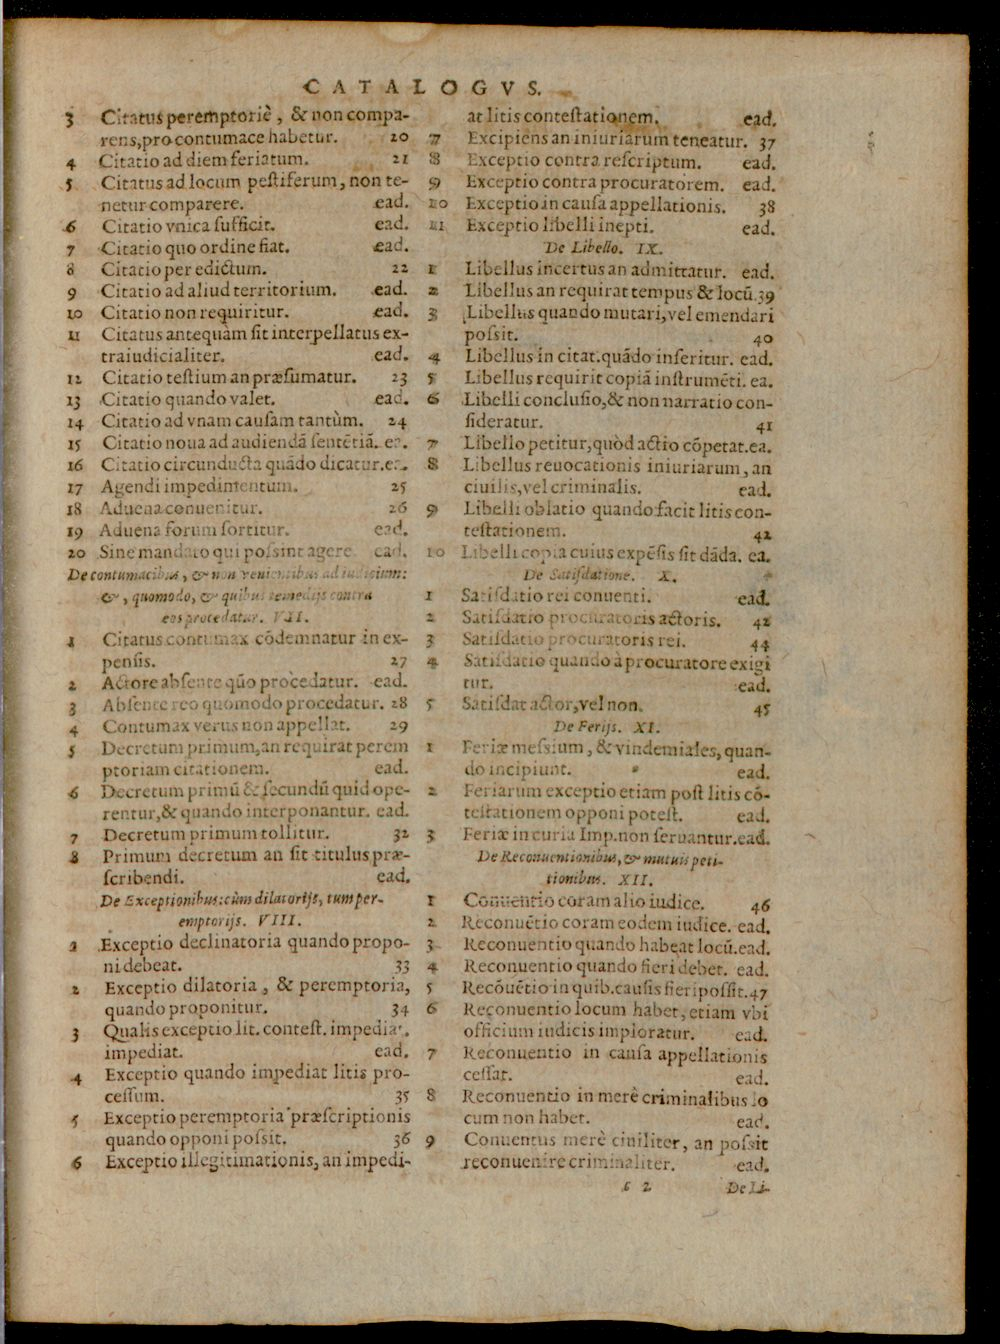 CATALOGVS.
3 Citatus peremptoriè, & non compa-
rens, pro contumace habetur. 20
4 Citatio ad diem feriatum. 21
5 Citatus ad locum pestiferum, non te-
netur comparere. ead.
6 Citatio vnica sufficit. ead.
7 Citatio quo ordine fiat. ead.
8 Citatio per edictum. 22
9 Citatio ad aliud territorium. ead.
10 Citatio non requiritur. ead.
11 Citatus antequàm sit interpellatus ex-
traiudicialiter. ead.
12 Citatio testium an præsumatur. 23
13 Citatio quando valet. ead.
14 Citatio ad vnam causam tantùm. 24
15 Citatio noua ad audiendā sentētiā. ea.
16 Citatio circunducta quādo dicatur. ea.
17 Agendi impedimentum. 25
18 Aduena conuenitur. 26
19 Aduena forum sortitur. ead.
20 Sine mandato qui possint agere ead.
De contumacibus, & non venientibus ad iudicium:
&, quomodo, & quibus remedijs contra
eos procedatur. VII.
1 Citatus contumax cōdemnatur in ex-
pensis. 27
2 Actore absente quō procedatur. ead.
3 Absente reo quomodo procedatur. 28
4 Contumax verus non appellat. 29
5 Decretum primum, an requirat perem
ptoriam citationem. ead.
6 Decretum primū & secundū quid ope-
rentur, & quando interponantur. ead.
7 Decretum primum tollitur. 32
8 Primum decretum an sit titulus præ-
scribendi. ead.
De Exceptionibus: cùm dilatorijs, tum per-
emptorijs. VIII.
1 Exceptio declinatoria quando propo-
ni debeat. 33
2 Exceptio dilatoria, & peremptoria,
quando proponitur. 34
3 Qualis exceptio lit. contest. impediat.
impediat. ead.
4 Exceptio quando impediat litis pro-
cessum. 35
5 Exceptio peremptoria præscriptionis
quando opponi possit. 36
6 Exceptio illegitimationis, an impedi-
at litis contestationem. ead.
7 Excipiens an iniuriarum teneatur. 37
8 Exceptio contra rescriptum. ead.
9 Exceptio contra procuratorem. ead.
10 Exceptio in causa appellationis. 38
11 Exceptio libelli inepti. ead.
De Libello. IX.
1 Libellus incertus an admittatur. ead.
2 Libellus an requirat tempus & locū. 39
3 Libellus quando mutari, vel emendari
possit. 40
4 Libellus in citat. quādo inseritur. ead.
5 Libellus requirit copiā instrumēti. ea.
6 Libelli conclusio, & non narratio con-
sideratur. 41
7 Libello petitur, quòd actio cōpetat. ea.
8 Libellus reuocationis iniuriarum, an
ciuilis, vel criminalis. ead.
9 Libelli oblatio quando facit litis con-
testationem. 42
10 Libelli copia cuius expēsis sit dāda. ea.
De Satisdatione. X.
1 Satisdatio rei conuenti. ead.
2 Satisdatio procuratoris actoris. 42
3 Satisdatio procuratoris rei. 44
4 Satisdatio quando à procuratore exigi
tur. ead.
5 Satisdat actor, vel non. 45
De Ferijs. XI.
1 Feriæ messium, & vindemiales, quan-
do incipiunt. ead.
2 Feriarum exceptio etiam post litis cō-
testationem opponi potest. ead.
3 Feriæ in curia Imp. non seruantur. ead.
De Reconuentionibus, & mutuis peti-
tionibus. XII.
1 Conuentio coram alio iudice. 46
2 Reconuētio coram eodem iudice. ead.
3 Reconuentio quando habeat locū. ead.
4 Reconuentio quando fieri debet. ead.
5 Recōuētio in quib. causis fieri possit. 47
6 Reconuentio locum habet, etiam vbi
officium iudicis imploratur. ead.
7 Reconuentio in causa appellationis
cessat. ead.
8 Reconuentio in merè criminalibus lo
cum non habet. ead.
9 Conuentus merè ciuiliter, an possit
reconuenire criminaliter. ead.
c 2 De Li-